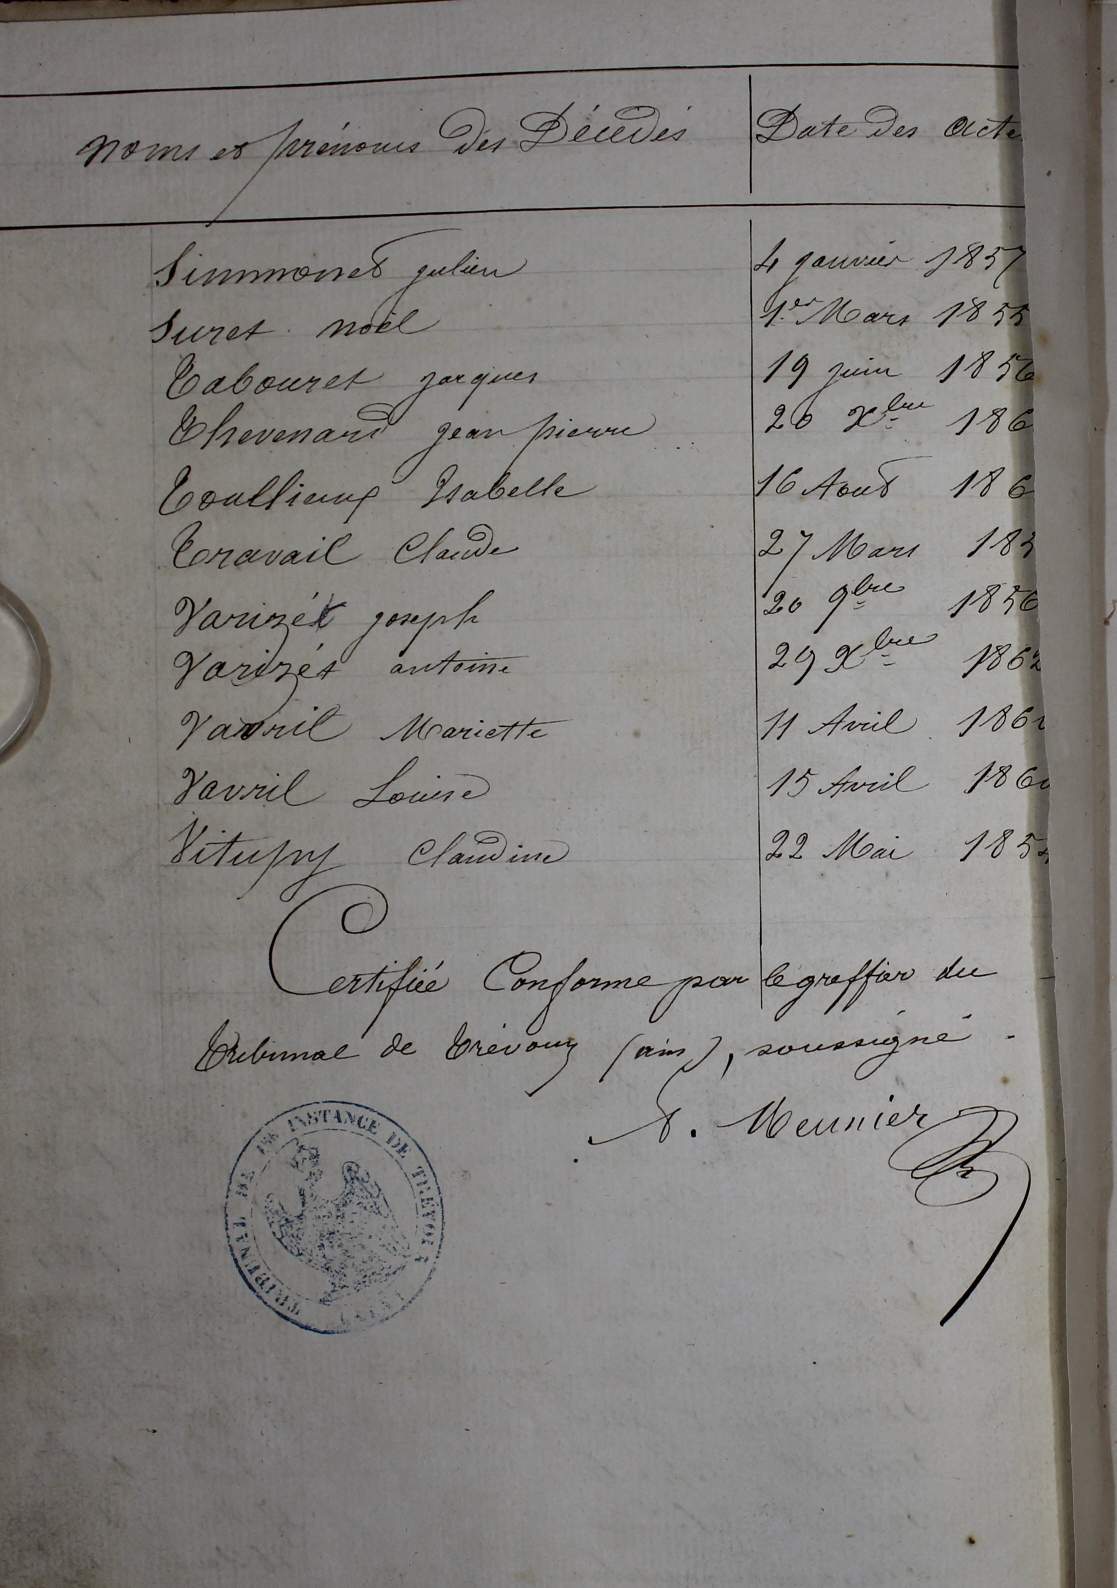 Noms et prénoms des Décédés Date des Acte
Simmonet julien 4 janvier 1857
Suret noël 1.er Mars 1855
Tabouret jacques 19 juin 1856
Thevenard jean pierre 20 Xbre 186
Toullieux Isabelle 16 Aout 186
Travail Claude 27 Mars 185
Varizét joseph 20 9bre 1856
Varizét antoine 29 Xbre 1862
Vavril Mariette 11 Avril 186
Vavril Louise 15 Avril 186
Vitupy Claudine 22 Mai 185
Certifiée Conforme par le greffier du
tribunal de trévoux (ain), soussigné.
Meunier
TRIBUNAL DE 1re INSTANCE DE TRÉVOUX